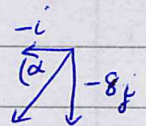 -i
α
-8j